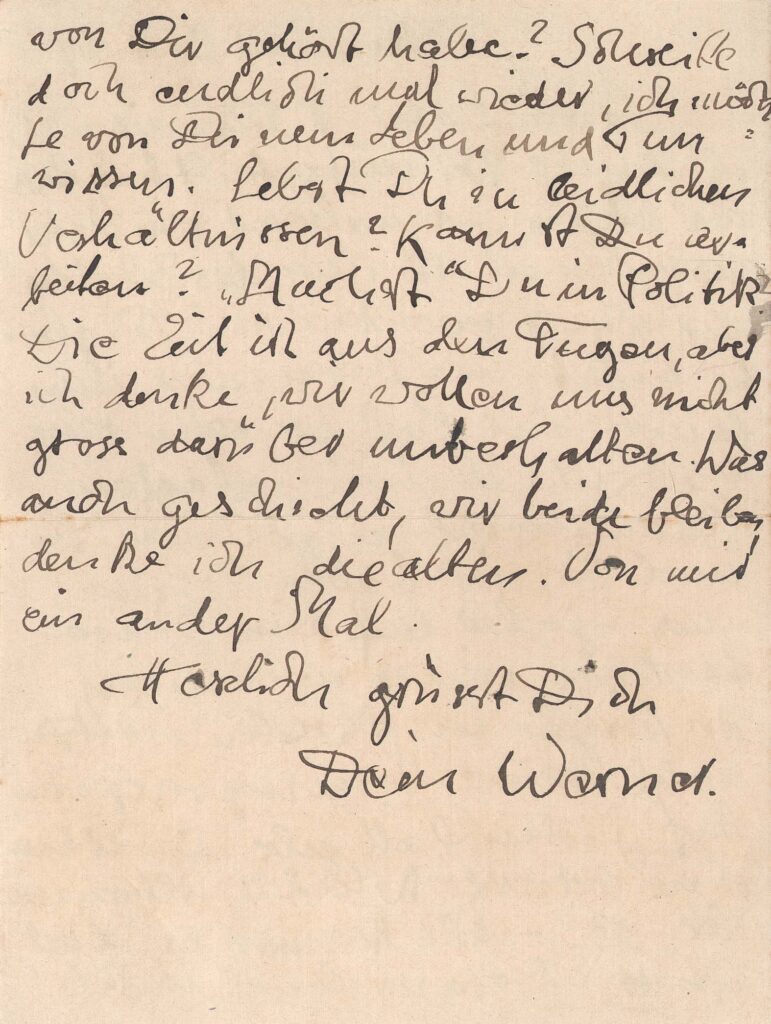 von Dir gehört habe? Schreibe
doch endlich mal wieder, ich möch
te von Dir nun Leben und Tun
wissen. Lebst Du in leidlichen
Verhältnissen? Kannst Du ar-
beiten? „Machst" Du in Politik
Die Zeit ist aus den Fugen, aber
ich denke, wir wollen uns nicht
gross darüber unterhalten. Was
auch geschieht, wir beide bleiben,
denke ich die alten. Von mir
ein ander Mal.
Herzlich grüsst Dich
Dein Werner.